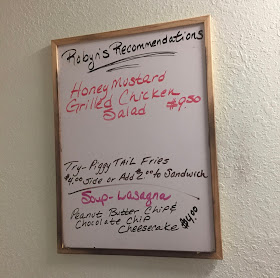 Robyn's Recommendations
Honey Mustard
Grilled Chicken
Salad $9.50
Try- Piggy TAIL Fries
$4.00 side or Add $2.00 to Sandwich
Soup - Lasagna
Peanut Butter Chip &
Chocolate Chip
Cheesecake $4.00